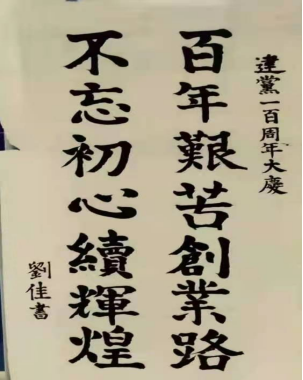 建黨一百周年大慶
百年艱苦創業路
不忘初心續輝煌
劉佳書